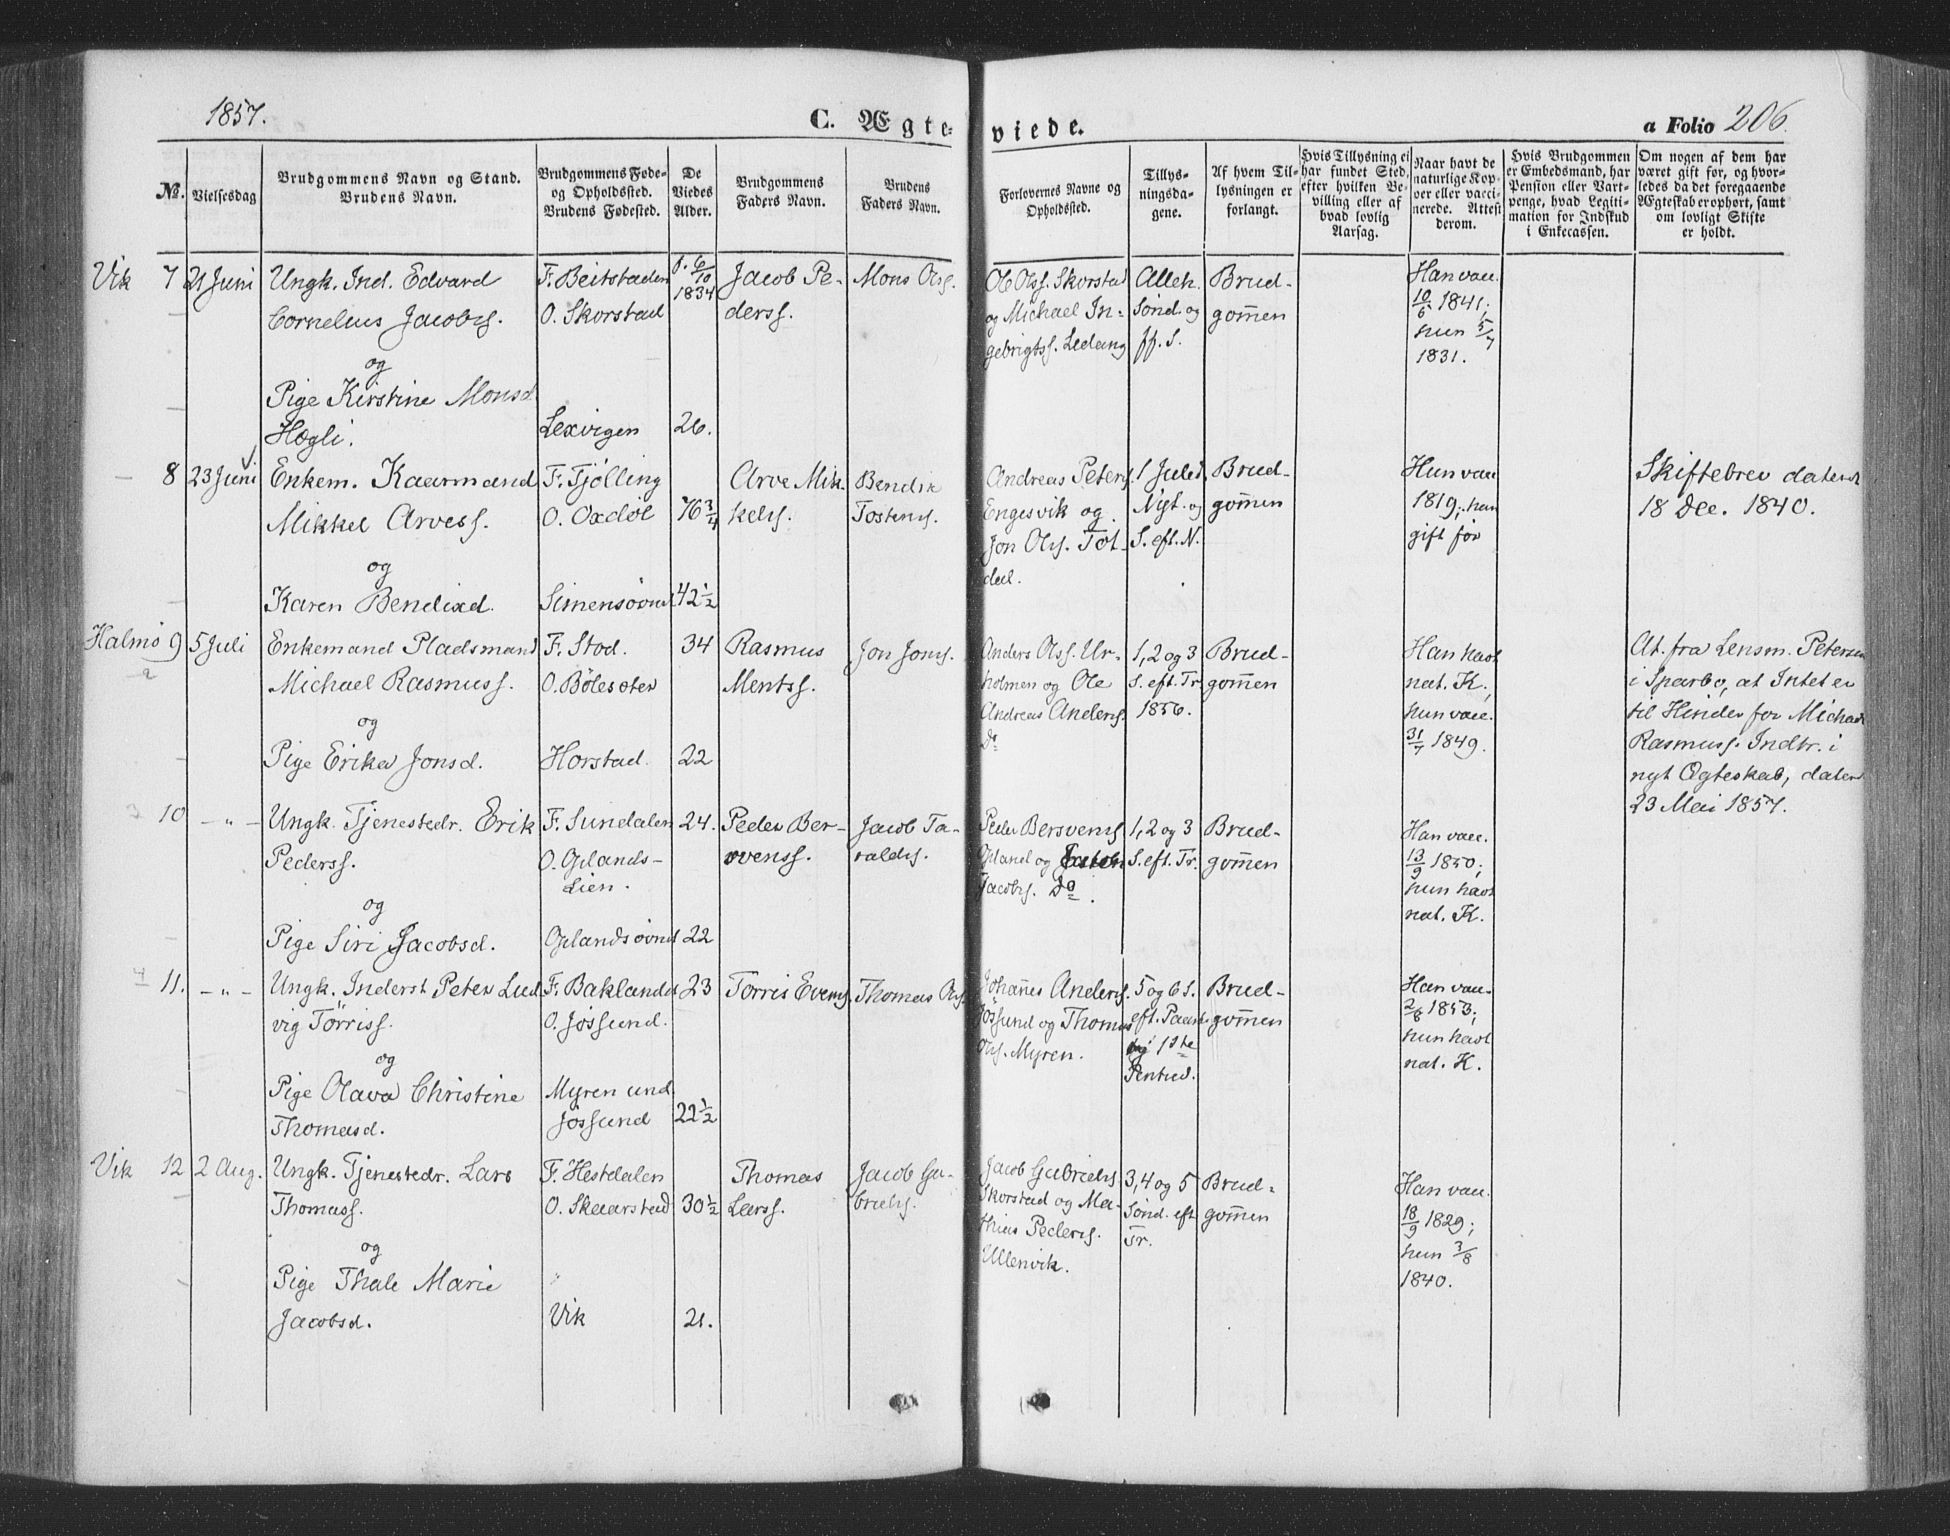 1857.
C. Ægte-
viede.
a Folio 206.
№.
Vielsesdag
Brudgommens Navn og Stand.
Brudens Navn.
Brudgommens Føde-
og Opholdssted.
Brudens Fødested.
De
Viedes
Alder.
Brudgommens
Faders Navn.
Brudens
Faders Navn.
Forlovernes Navne og
Opholdssted.
Tillys-
ningsda-
gene.
Af hvem Til-
lysningen er
forlangt.
Hvis Tillysning ei
har fundet Sted,
efter hvilken Be-
villing eller af
hvad lovlig
Aarsag.
Naar havt de
naturlige Kop-
per eller vacci-
nerede. Attest
derom.
Hvis Brudgommen
er Embedsmand, har
Pension eller Vart-
penge, hvad Legiti-
mation for Indskud
i Enkecassen.
Om nogen af dem har
været gift før, og hvor-
ledes da det foregaaende
Ægteskab er ophørt, samt
om lovligt Skifte
er holdt.
Vik 7 21 Juni
Ungk. Ind. Edvard
Cornelius Jacobs.
og
Pige Kirstine Monsd
Hægli.
F. Beitstaden
O. Skorstad
Lexvigen
f. 6/10
1834
26.
Jacob Pe-
derss.
Mons Ols.
Ole Olss. Skorstad
og Michael In-
gebrigtss. Ledang
Alleh.
Sønd. og
ff. S.
Brud-
gommen
Han vac.
10/6 1841;
hun 5/7
1831.
8 23 Juni
Enkem. Kaarmand
Mikkel Arvess.
og
Karen Bendixd.
F. Tjølling
O. Oxdøl
Simensøvnd
76 3/4
42 1/2
Arve Mik-
kels.
Bendik
Tostens.
Andreas Peters.
Engesvik og
Jon Ols. Tot-
dal.
1 Juled.
Nyt. og
S. eft. N.
Brud-
gommen
Hun vac
1819; han
gift før
Skiftebrev dateret
18 Dec. 1840.
Halmø 9 5 Juli
Enkemand Pladsmand
Michael Rasmuss.
og
Pige Erika Jonsd.
F. Stod.
O. Bølesøter
Horstad.
34
22
Rasmus
Mentss.
Jon Jons.
Anders Olss. Ur-
holmen og Ole
Andreas Anders.
Do
1, 2 og 3
S. eft. Tr.
1856.
Brud-
gommen
Han havt
nat. K.,
hun vac.
31/7 1849.
At. fra Lensm. Petersen
i Sparbo, at Intet er
til Hinder for Michael
Rasmuss. Indtr. i
nyt Ægteskab, dater
23 Mai 1857.
10 - " -
Ungk. Tjenestedr. Erik
Pederss.
og
Pige Siri Jacobsd.
F. Sundalen
O. Oplands-
Lien.
Oplandsøvnd
24.
22
Peder Ber-
svenss.
Jacob Ta-
ralds.
Peder Bersvens.
Opland og
Jacobs. Do.
1, 2 og 3
S. eft. Tr.
Brud-
gommen
Han vac.
13/9 1850;
hun havt
nat. K.
11. - " -
Ungk. Inderst Peter Lud
vig Tørriss.
og
Pige Olava Christine
Thomasd.
F. Baklandet
O. Jøssund.
Myren und
Jøssund
23
22 1/2
Torris Evens.
Thomas Ols.
Johannes Anders.
Jøssund og Thomas
Ols. Myren.
5 og 6 S.
eft. Paaske
og 1ste
Pentsd.
Brud-
gommen
Han vac.
2/8 1853;
hun havt
nat. K.
Vik 12 2 Aug.
Ungk. Tjenestedr. Lars
Thomass.
og
Pige Thale Marie
Jacobsd.
F. Hestdalen
O. Skaarstad
Vik
30 1/2
21.
Thomas
Larss.
Jacob Ga-
briels.
Jacob Gabriels.
Skorstad og Ma-
thias Peders.
Ullenvik.
3, 4 og 5
Sønd. eft
Tr.
Brud-
gommen
Han vac.
18/9 1829;
hun 3/8
1840.